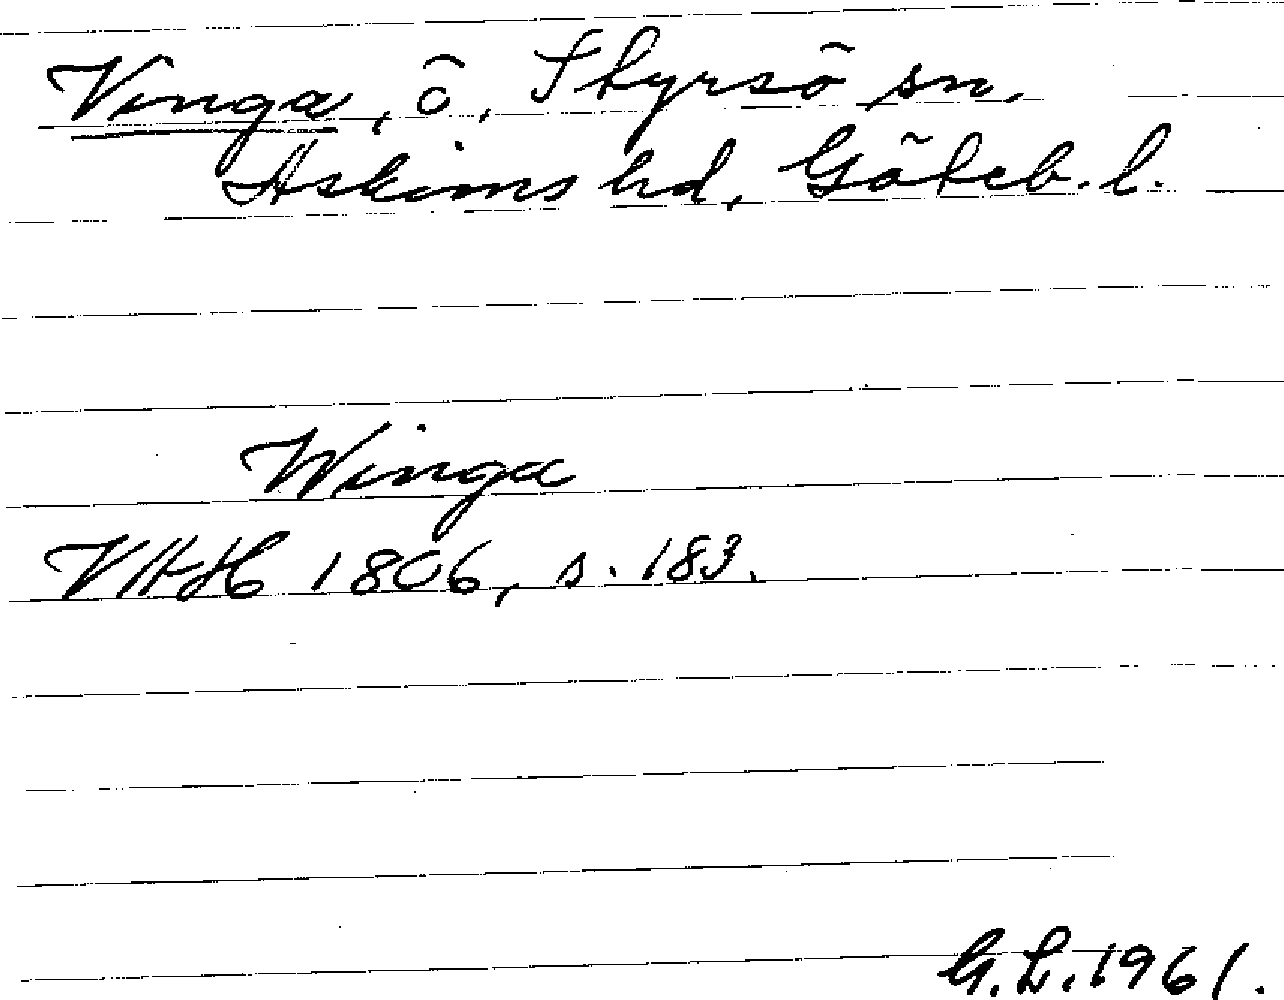 Vinga, ö, Styrsö sn.
Askims hd, Göteb. l.
Winga
VAH 1806, s. 183.
G. L. 1961.